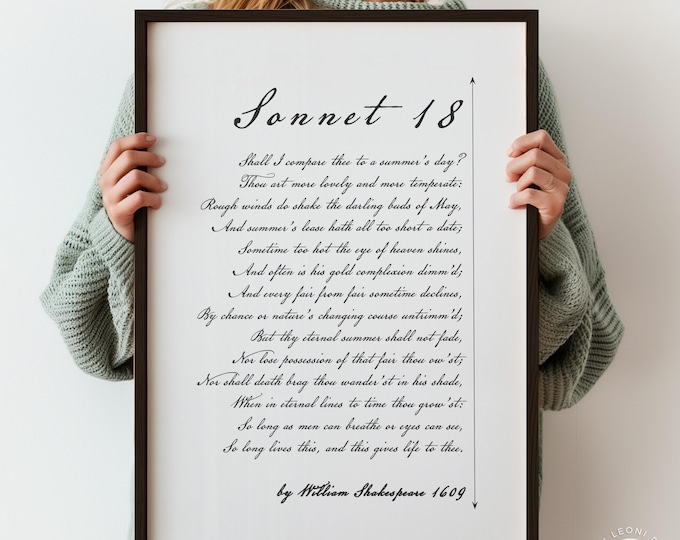 Sonnet 18
Shall I compare thee to a summer's day?
Thou art more lovely and more temperate:
Rough winds do shake the darling buds of May,
And summer's lease hath all too short a date;
Sometime too hot the eye of heaven shines,
And often is his gold complexion dimm'd;
And every fair from fair sometime declines,
By chance or nature's changing course untrimm'd;
But thy eternal summer shall not fade,
Nor lose possession of that fair thou ow'st;
Nor shall death brag thou wander'st in his shade,
When in eternal lines to time thou grow'st:
So long as men can breathe or eyes can see,
So long lives this, and this gives life to thee.
by William Shakespeare 1609
LEONI